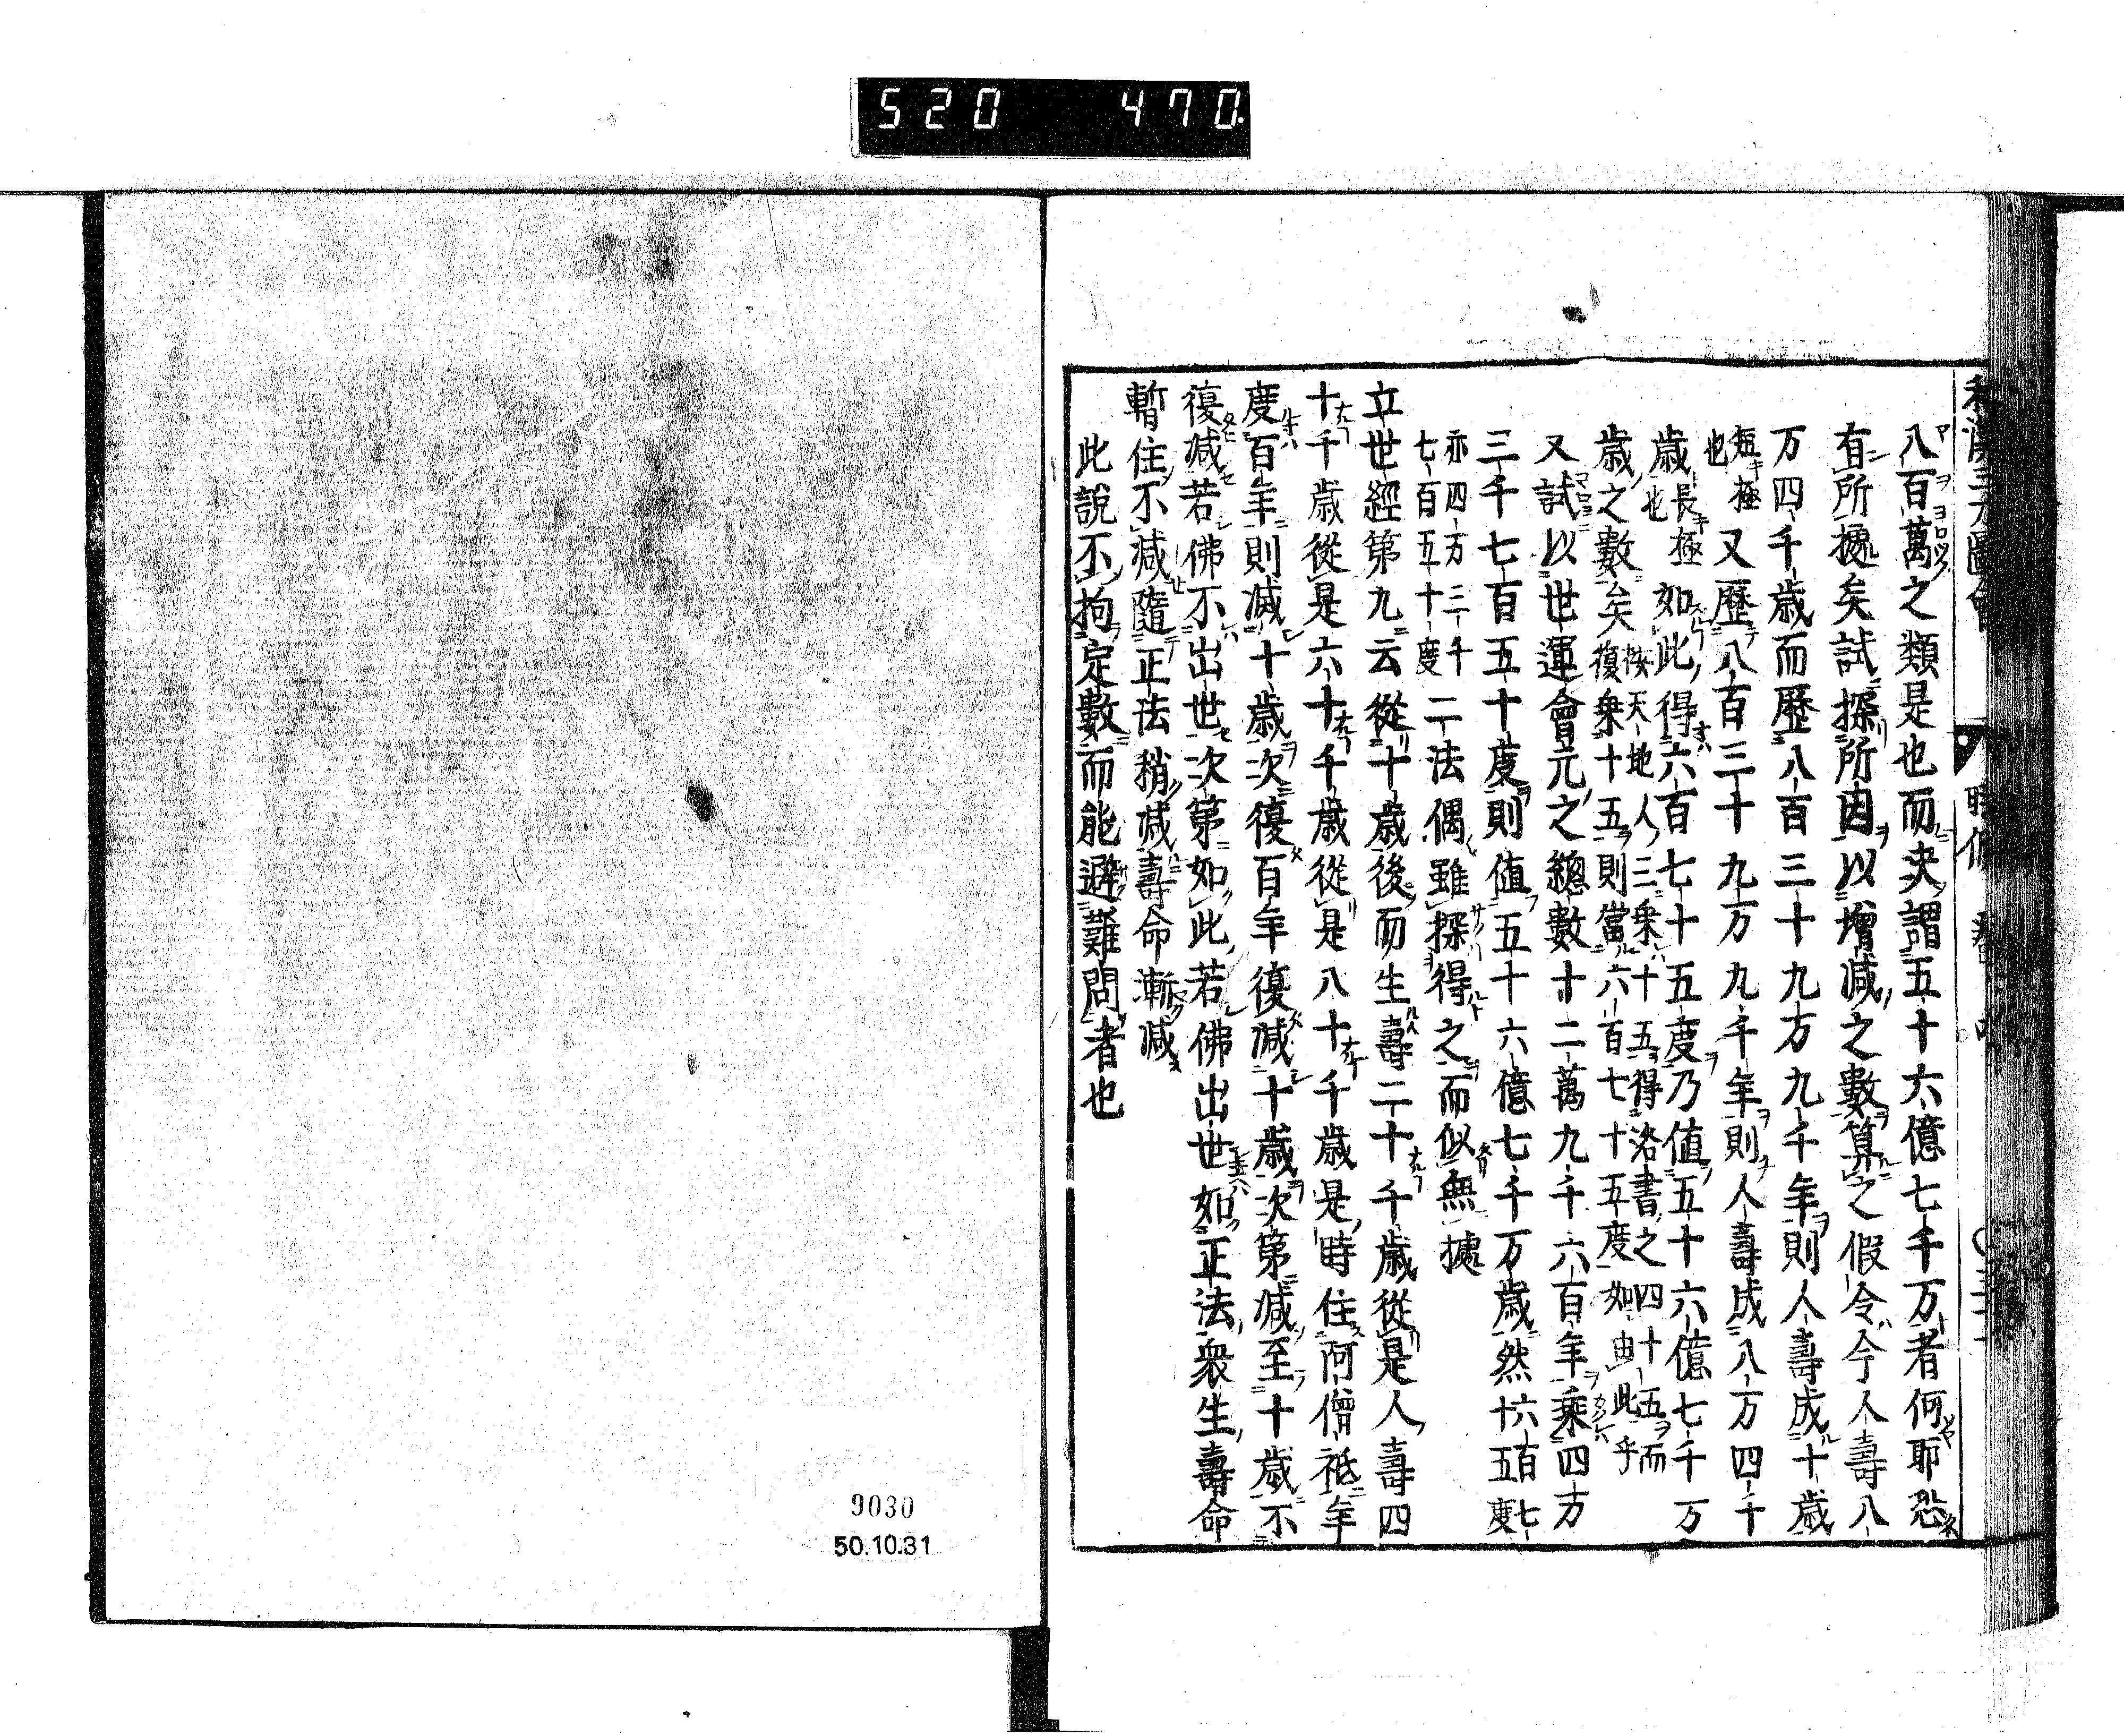 520 470.
八百萬之類是也而決謂五十六億七千万者何耶恐
有所據矣試探所因以增減之數算之假令今人壽八
万四千歳而歷八百三十九万九千年則人壽成十歳
短極也又歷八百三十九万九千年則人壽成八万四千
歳長極也如此得六百七十五度乃值五十六億七千万
歳之數矣按天地人三乗十五得洛書之四十五而復乗十五則當六百七十五度如由此乎
又試以世運會元之總數十二萬九千六百年乘四万
三千七百五十度則值五十六億七千万歳然六百七十五度
亦四万三千七百五十度二法偶雖探得之而似無據
立世經第九云從十歳後而生壽二十千歳從是人壽四
十千歳從是六十千歳從是八十千歳是時住阿僧祗年
度百年則減十歳次復百年復減十歳次第減至十歳不
復減若佛不出世次第如此若佛出世如正法衆生壽命
暫住不減隨正法稍減壽命漸減
此說不拘定數而能避難問者也
9030
50.10.31